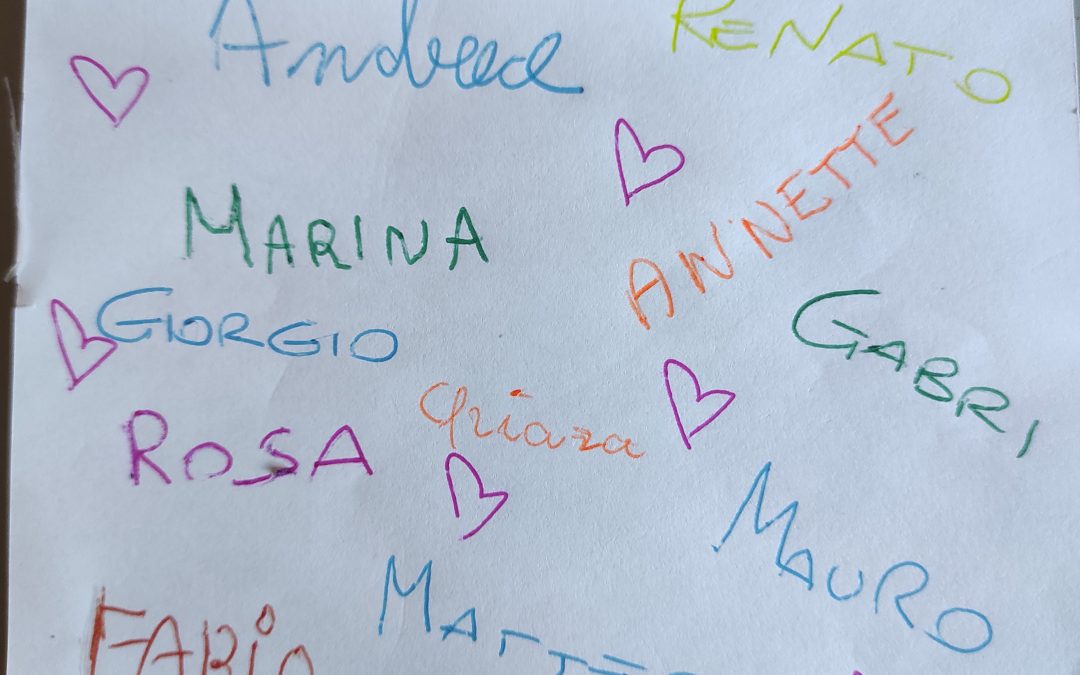 Andrea
RENATO
ANNETTE
MARINA
GIORGIO
GABRI
Chiara
ROSA
MAURO
MATTEO
FABIO